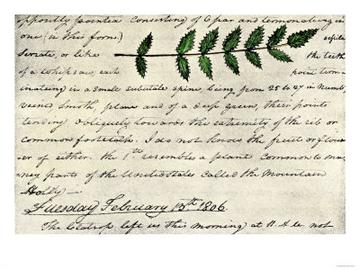 oppositly pointed consisting of 6 par and terminating in
one (in this form) sessile
Serrate, or like the teeth
of a whipsaw, each point ter-
minating in a small subulate spine being from 25 to 27 in numb.
veined Smoth, plane and of a deep green, their points
tending obliquely towards the extremity of the rib or
common footstalk. I do not know the fruit or flow
er of either. the 1st resembles a plant common to ma-
ney parts of the United States called the Mountain
Holly—
Tuesday February 13th 1806.
The Clatsop left us this morning at 11. A.M. not